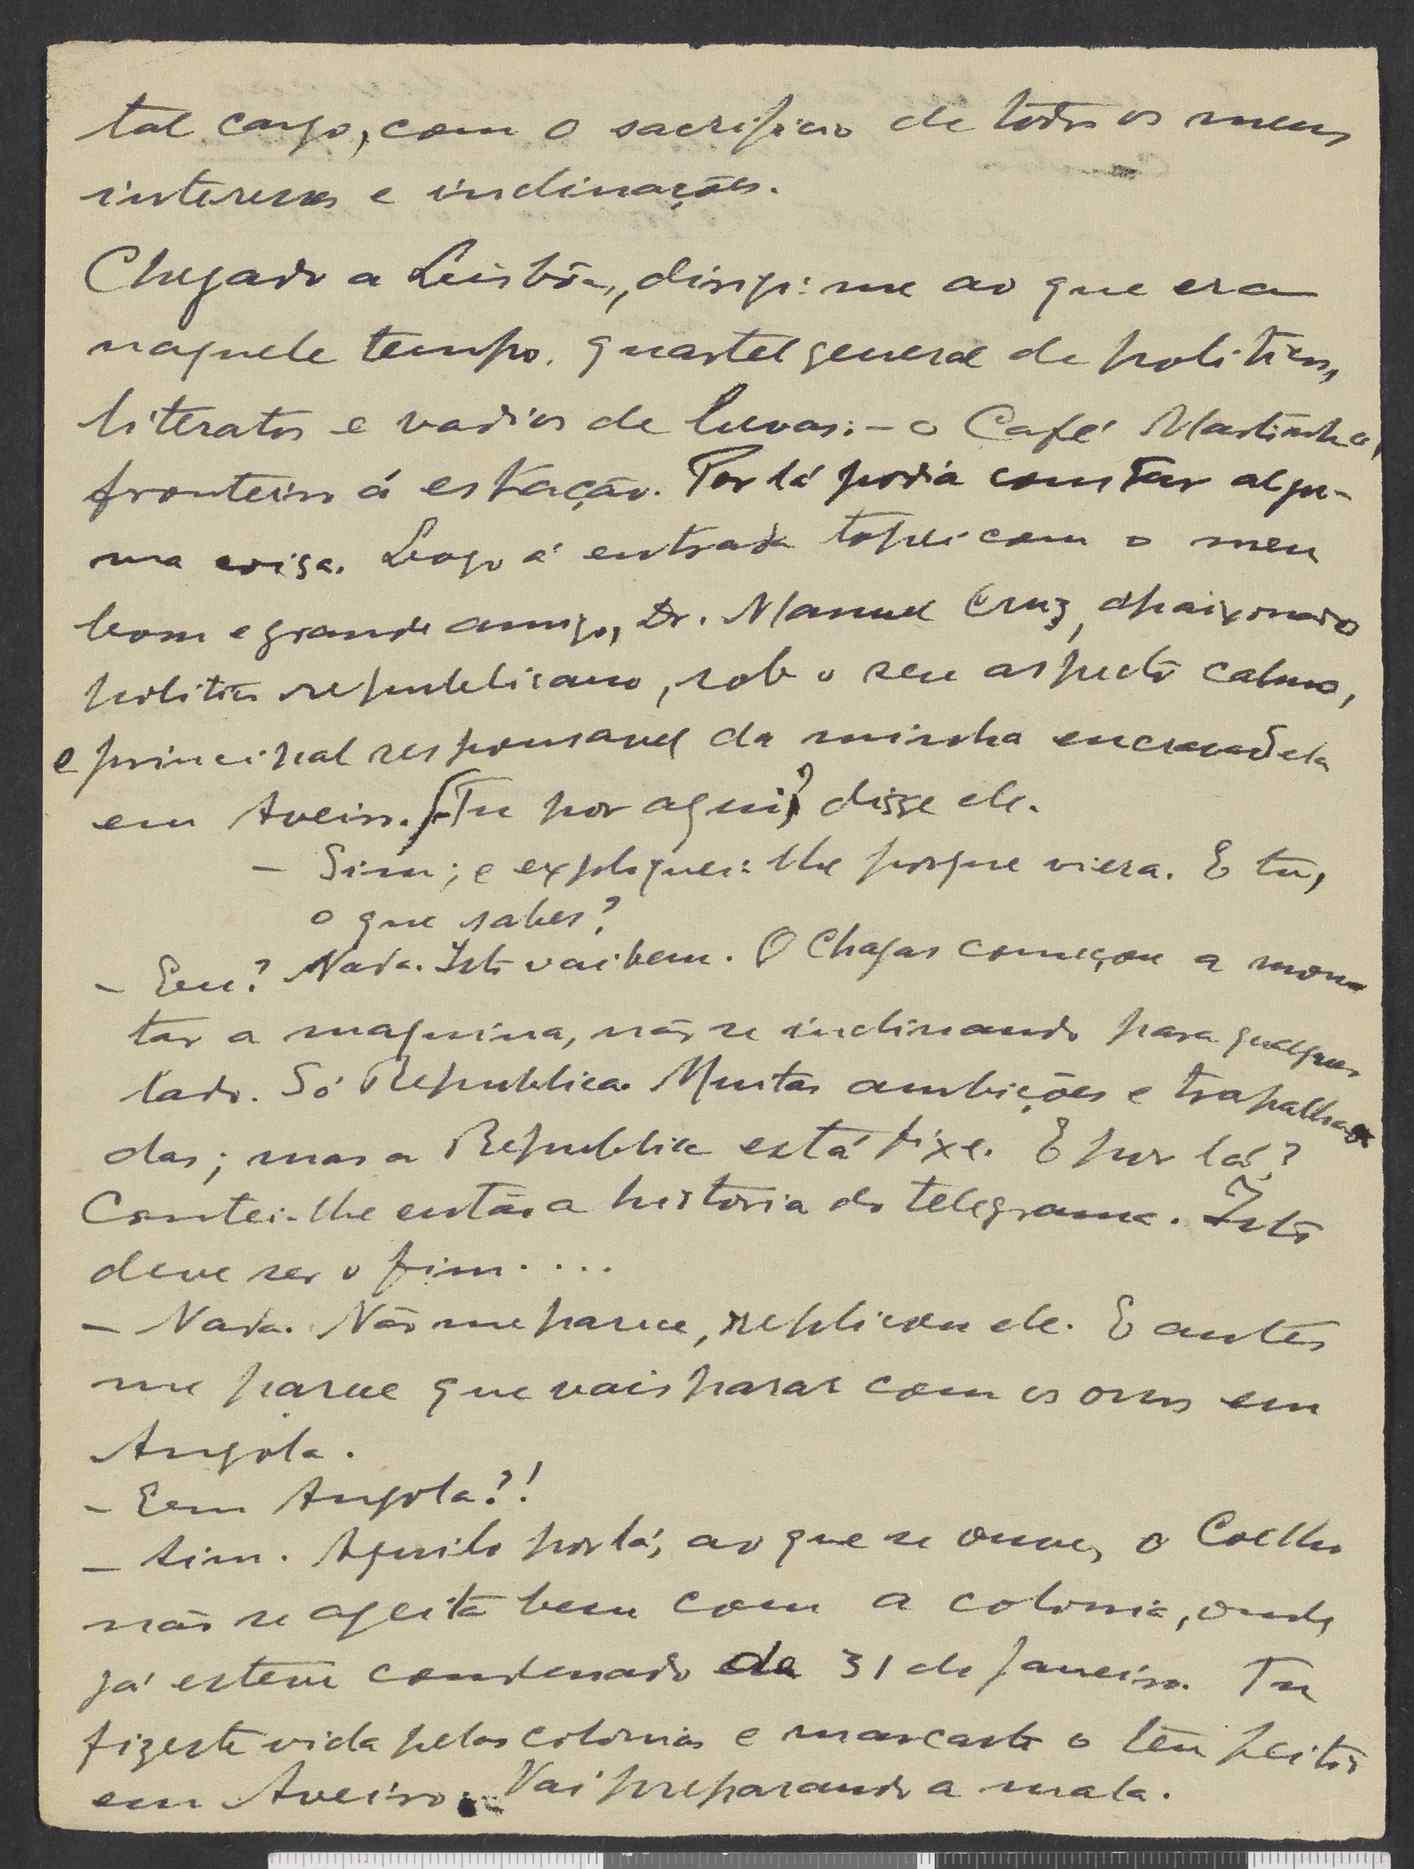 tal cargo, com o sacrificio de todos os meus
interesses e inclinações.
Chegado a Lisbôa, dirigi-me ao que era
naquele tempo quartel general de politicos,
literatos e vadios de luvas: - o Café Martinho,
fronteiro á estação. Por lá podia constar algu-
ma coisa. Logo á entrada topei com o meu
bom e grande amigo, Dr. Manuel Cruz, apaixonado
politico republicano, sob o seu aspecto calmo,
e principal responsavel da minha encravadela
em Aveiro. [- Tu por aqui? disse ele.
- Sim; e expliquei-lhe porque viera. E tu,
o que sabes?
- Eu? Nada. Isto vai bem. O Chagas começou a mon-
tar a maquina, não se inclinando para qualquer
lado. Só Republica. Muitas ambições e trapalha-
das; mas a Republica está fixe. E por lá?
Contei-lhe então a historia do telegrama. Isto
deve ser o fim....
- Nada. Não me parece, replicou ele. E antes
me parece que vais parar com os ossos em
Angola.
- Em Angola?!
- Sim. Aquilo por lá, ao que se ouve, o Coelho
não se ageita bem com a colonia, onde
já esteve condenado de 31 de Janeiro. Tu
fizeste vida pelas colonias e marcaste o teu feitio
em Aveiro. Vai preparando a mala.